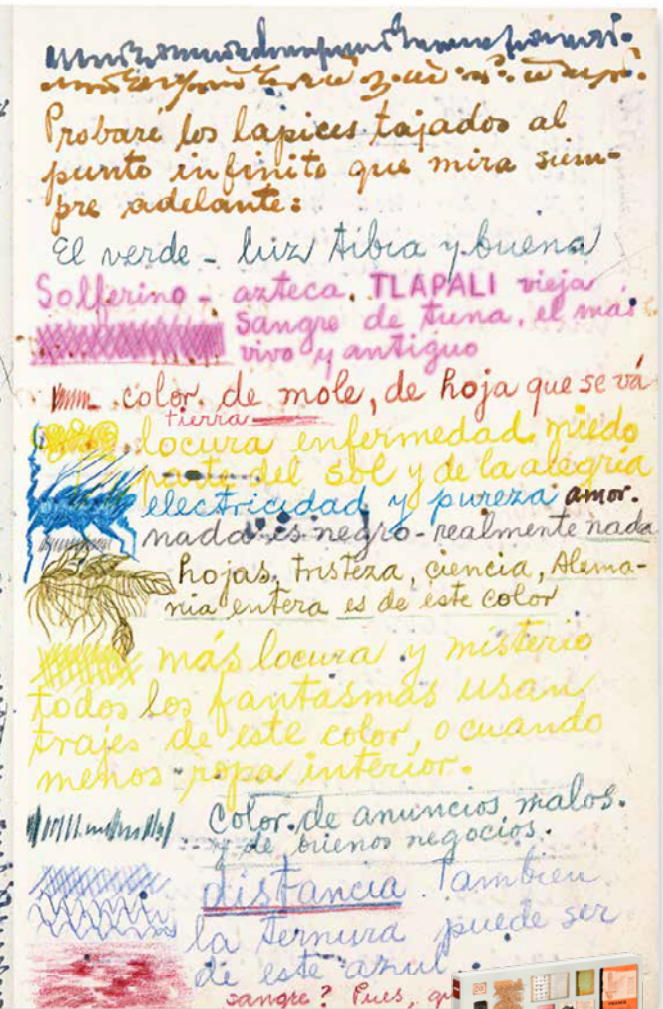 Probaré los lapices tajados al
punto infinito que mira siem-
pre adelante:
El verde - luz tibia y buena
Solferino - azteca. TLAPALI vieja
sangre de tuna, el más
vivo y antiguo
color de mole, de hoja que se vá
tierra
locura enfermedad miedo
parte del sol y de la alegria
electricidad y pureza amor.
nada es negro - realmente nada
hojas, tristeza, ciencia, Alema-
nia entera es de este color
más locura y misterio
todos los fantasmas usan
trajes de este color, o cuando
menos ropa interior.
Color de anuncios malos.
y de buenos negocios.
distancia. Tambien
la ternura puede ser
de este azul
sangre? Pues,